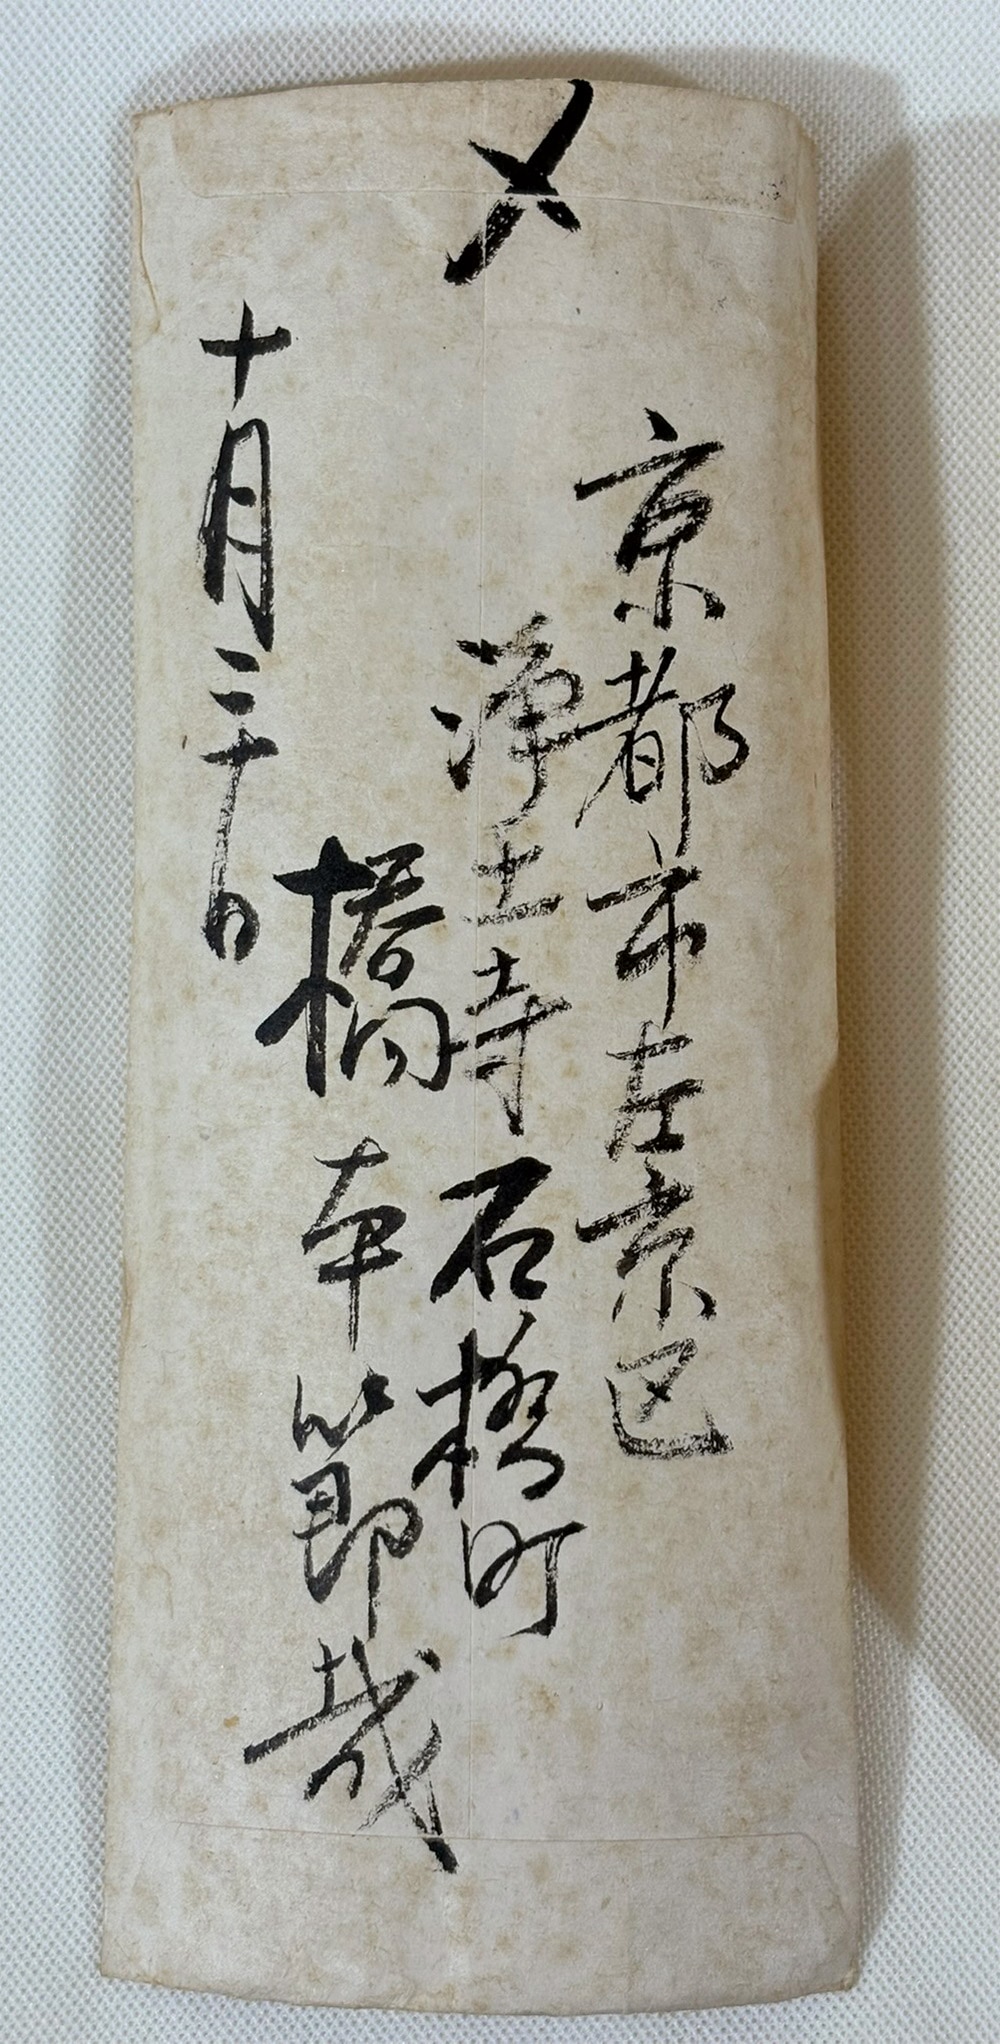 〆
京都市左京区
浄土寺石橋町
橋本節哉
十月二十日